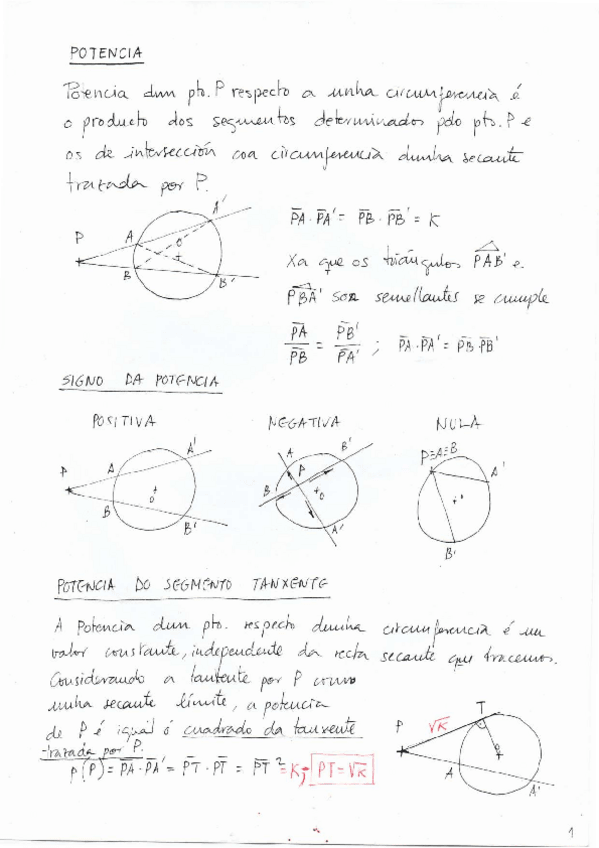 POTENCIA
Potencia dun pto. P respecto a unha circunferencia é
o producto dos segmentos determinados polo pto. P e
os de intersección coa circunferencia dunha secante
trazada por P.
P A A' O B B'
PA · PA' = PB · PB' = K
Xa que os triángulos PAB' e
PBA' son semellantes se cumple
PA/PB = PB'/PA' ; PA · PA' = PB · PB'
SIGNO DA POTENCIA
POSITIVA NEGATIVA NULA
P A A' O B B'
A P B' B O A'
P≡A≡B A' O B'
POTENCIA DO SEGMENTO TANXENTE
A Potencia dun pto. respecto dunha circunferencia é un
valor constante, independente da recta secante que tracemos.
Considerando a tanxente por P como
unha secante límite, a potencia
de P é igual ó cuadrado da tanxente
trazada por P.
P(P) = PA · PA' = PT · PT = PT² = K; PT = √K
P √K T O A A'
1